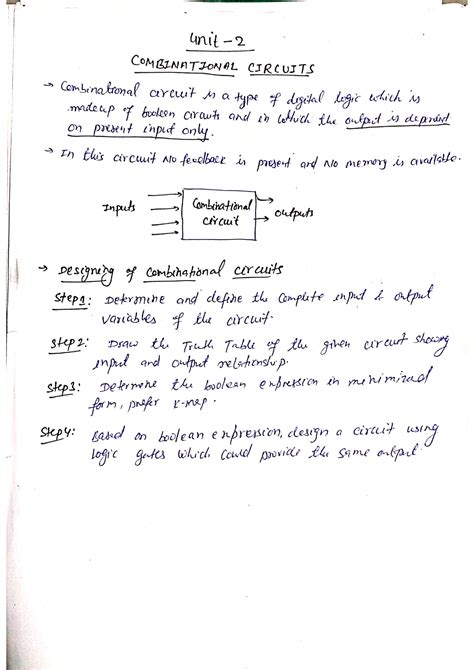 Unit-2
COMBINATIONAL CIRCUITS
→ Combinational circuit is a type of digital logic which is
made up of boolean circuits and in which the output is depended
on present input only.
→ In this circuit No feedback is present and No memory is available.
Inputs
Combinational
circuit
outputs
→ Designing of combinational circuits
Step1: Determine and define the complete input & output
variables of the circuit.
Step2: Draw the Truth Table of the given circuit showing
input and output relationship.
Step3: Determine the boolean expression in minimized
form, prefer K-map.
Step4: Based on boolean expression, design a circuit using
logic gates which could provide the same output.